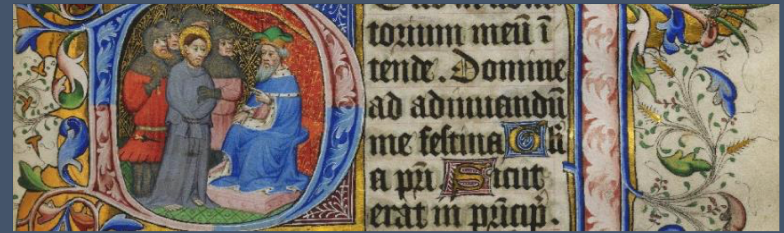 torium meū ī
tende. Domine
ad adiuuandū
me festina Gli
a pri Sicut
erat in prīcip̄.